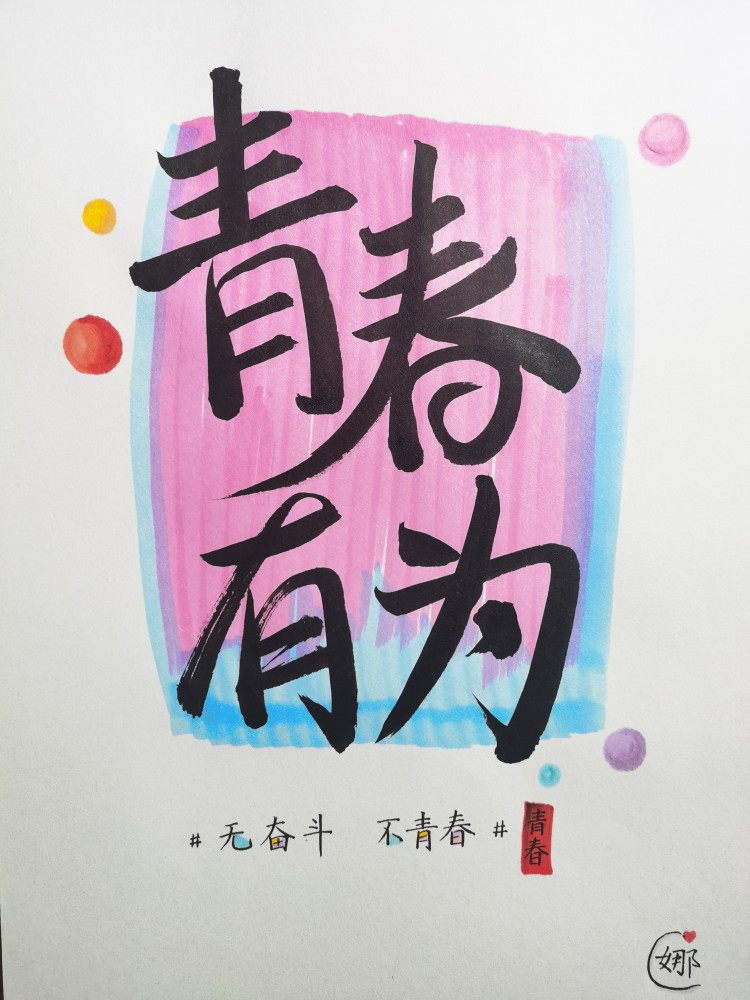 青春
有为
#无奋斗 不青春#
青春
娜